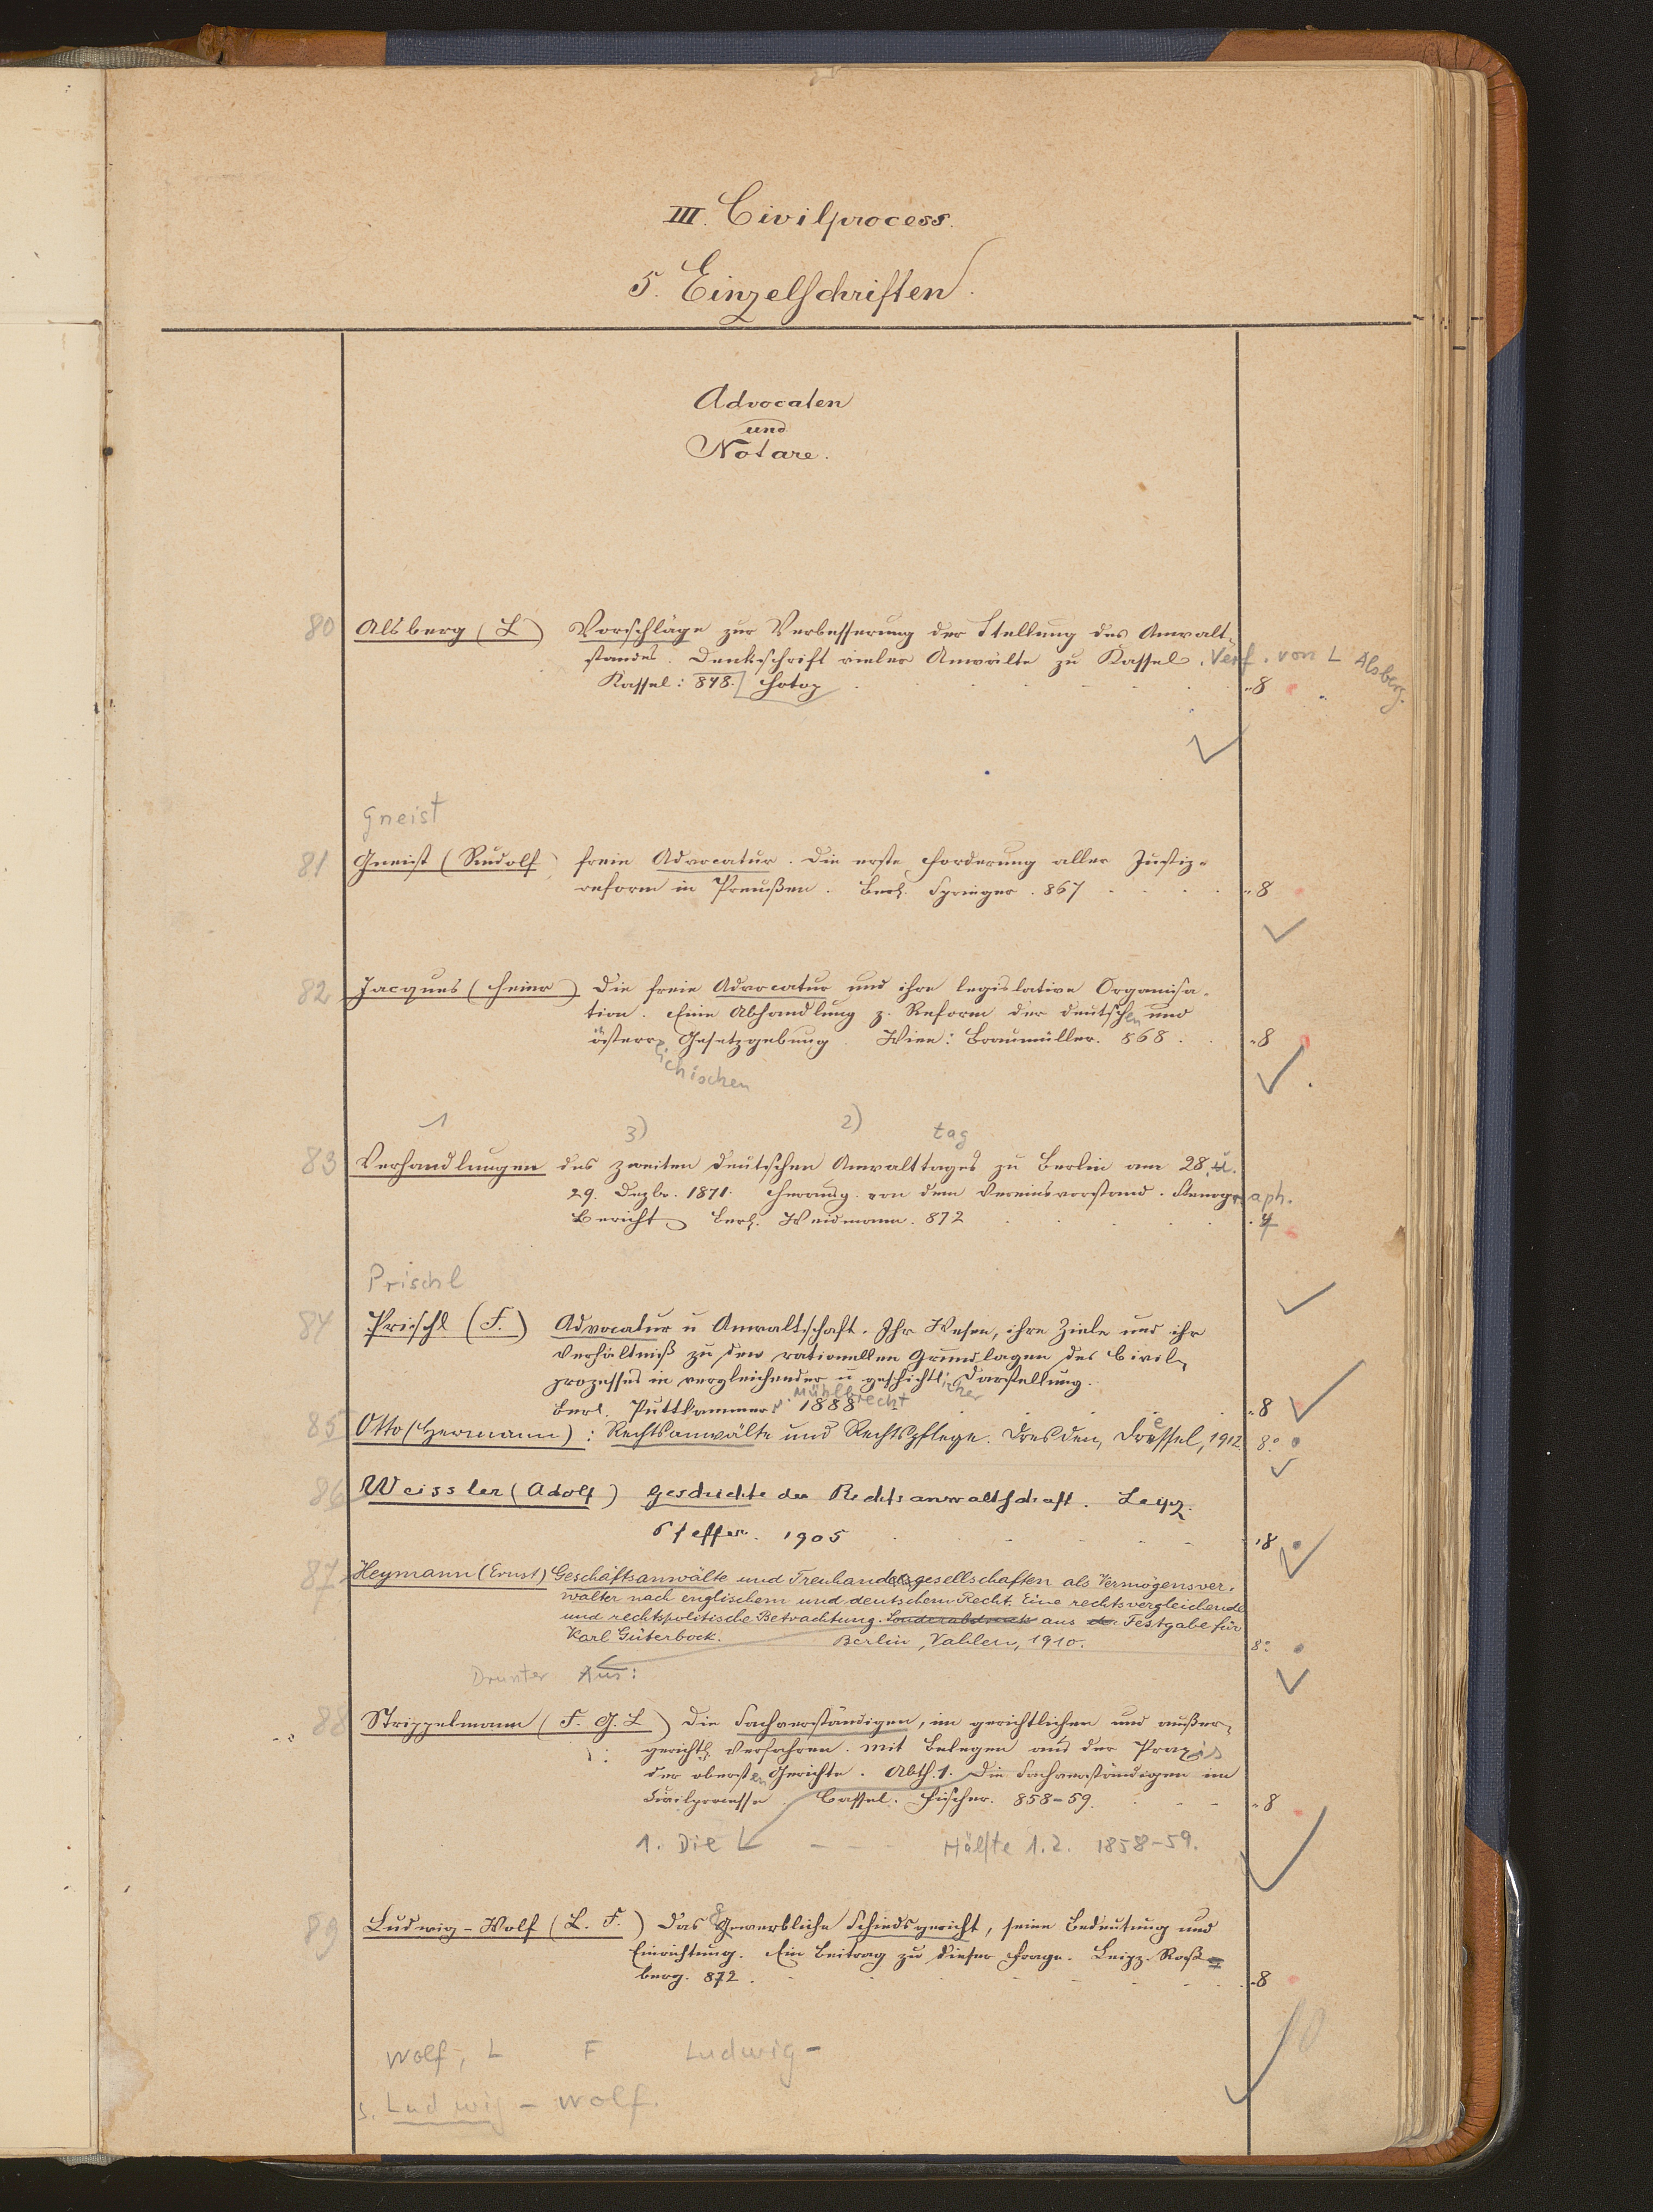 III. Civilprocess.
5. Einzelschriften.
Advocaten
und
Notare.
80 Alsberg (L) Vorschläge zur Verbesserung der Stellung des Anwalt-
standes. Denkschrift vieler Anwälte zu Kassel. Verf. von L Alsberg.
Kassel: 878. Hotop " 8
Gneist
81 Gneist (Rudolf) freie Advocatur. Die erste Forderung aller Justiz-
reform in Preußen. Berl. Springer. 867 " 8
82 Jacques (Heinr) Die freie Advocatur und ihre legislative Organisa-
tion. Eine Abhandlung z. Reform der deutschen und
österr. Gesetzgebung. Wien: Braumüller. 868. " 8
ichischen
1 3) 2) tag
83 Verhandlungen des zweiten deutschen Anwalttages zu Berlin am 28. u.
29. Dezbr. 1871. Herausg. von dem Vereinsvorstand. Stenograph.
Bericht Berl. Weidmann. 872 . 4
Prischl
84 Prischl (F.) Advocatur u Anwaltschaft. Ihr Wesen, ihre Ziele und ihr
Verhältniß zu den rationellen Grundlagen des Civil-
prozesses in vergleichender u geschichtlicher Darstellung.
Berl. Puttkammer u. Mühlbrecht 1888 " 8
85 Otto (Hermann): Rechtsanwälte und Rechtspflege. Dresden, Dressel, 1912. 8°
86 Weissler (Adolf) Geschichte der Rechtsanwaltschaft. Leipz.
Pfeffer. 1905 " 8
87 Heymann (Ernst) Geschäftsanwälte und Treuhandgesellschaften als Vermögensver-
walter nach englischem und deutschem Recht. Eine rechtsvergleichende
und rechtspolitische Betrachtung. Sonderabdruck aus der Festgabe für
Karl Güterbock. Berlin, Vahlen, 1910. 8°
Drunter Aus:
88 Strippelmann (F. G. L) Die Sachverständigen, im gerichtlichen und außer-
gerichtl. Verfahren. Mit Belegen aus der Praxis
der obersten Gerichte. Abth. 1. Die Sachverständigen im
Civilprocesse. Cassel. Fischer. 858-59. " 8
1. Die - - - Hälfte 1.2. 1858-59.
89 Ludwig-Wolf (L. F.) Das Gewerbliche Schiedsgericht, seine Bedeutung und
Einrichtung. Ein Beitrag zu dieser Frage. Leipz. Roß-
berg. 872. - 8
Wolf, L F Ludwig-
s. Ludwig-Wolf.